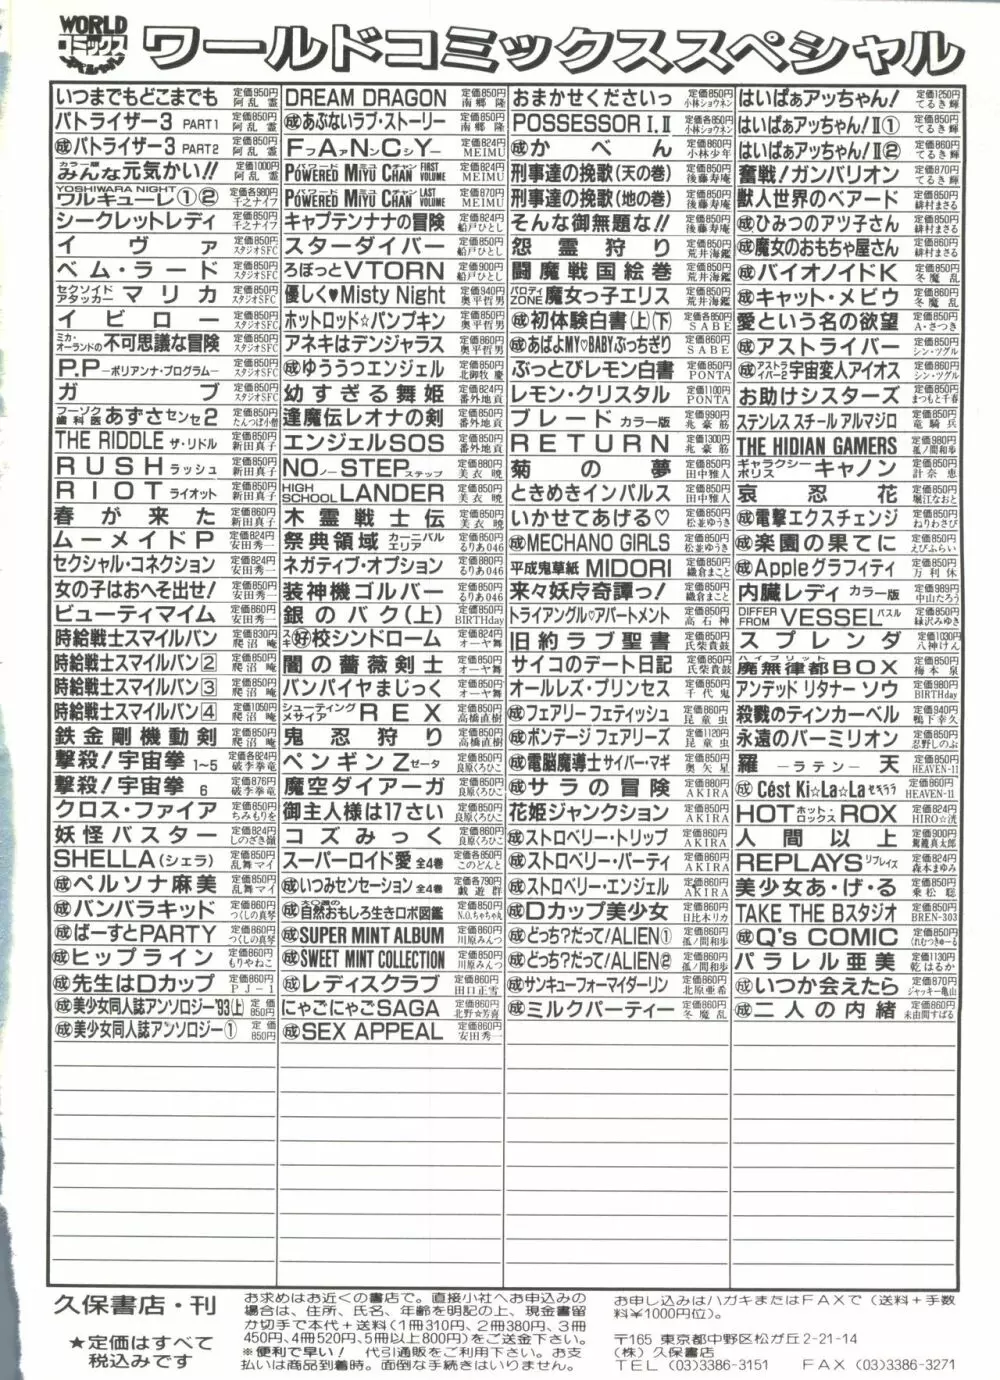 WORLD
コミックス
スペシャル
ワールドコミックススペシャル
いつまでもどこまでも 定価950円 阿乱霊
バトライザー3 PART1 定価950円 阿乱霊
成 バトライザー3 PART2 定価850円 阿乱霊
カラー版 みんな元気かい!! 定価1000円 阿乱霊
YOSHIWARA NIGHT ワルキューレ①② 定価各980円 千之ナイフ
シークレットレディ 定価850円 千之ナイフ
イヴァ 定価850円 スタジオSFC
ベム・ラード 定価850円 スタジオSFC
セクソイドアタッカー マリカ 定価850円 スタジオSFC
イビロー 定価850円 スタジオSFC
ミカ・オーランドの不可思議な冒険 定価850円 スタジオSFC
P.P ―ポリアンナ・プログラム― 定価850円 スタジオSFC
ガブ 定価850円 スタジオSFC
フーゾク歯科医 あずさセンセ2 定価850円 たんつぼ小僧
THE RIDDLE ザ・リドル 定価850円 新田真子
RUSH ラッシュ 定価850円 新田真子
RIOT ライオット 定価850円 新田真子
春が来た 定価860円 新田真子
ムーメイドP 定価824円 安田秀一
セクシャル・コネクション 定価824円 安田秀一
女の子はおへそ出せ! 定価850円 安田秀一
ビューティマイム 定価860円 安田秀一
時給戦士スマイルバン 定価830円 爬沼庵
時給戦士スマイルバン2 定価850円 爬沼庵
時給戦士スマイルバン3 定価850円 爬沼庵
時給戦士スマイルバン4 定価1050円 爬沼庵
鉄金剛機動剣 定価850円 爬沼庵
撃殺!宇宙拳 1~5 定価各824円 破李拳竜
撃殺!宇宙拳 6 定価876円 破李拳竜
クロス・ファイア 定価850円 ちみもりを
妖怪バスター 定価824円 しのざき嶺
SHELLA(シェラ) 定価850円 乱舞マイ
成 ペルソナ麻美 定価850円 乱舞マイ
成 バンバラキッド 定価860円 つくしの真琴
成 ばーすとPARTY 定価850円 つくしの真琴
成 ヒップライン 定価860円 もりやねこ
成 先生はDカップ 定価860円 PJ-1
成 美少女同人誌アンソロジー'93(上) 定価850円
成 美少女同人誌アンソロジー① 定価850円
DREAM DRAGON 定価850円 南郷隆
成 あぶないラブ・ストーリー 定価850円 南郷隆
FファAァNンCシY 定価824円 MEIMU
パワード ミユ チャン POWERED MIYU CHAN FIRST VOLUME 定価824円 MEIMU
パワード ミユ チャン POWERED MIYU CHAN LAST VOLUME 定価870円 MEIMU
キャプテンナナの冒険 定価824円 船戸ひとし
スターダイバー 定価850円 船戸ひとし
ろぼっとVTORN 定価900円 船戸ひとし
優しく♥Misty Night 定価940円 奥平哲男
ホットロッド☆パンプキン 定価850円 奥平哲男
アネキはデンジャラス 定価860円 奥平哲男
成 ゆううつエンジェル 定価850円 北御牧慶
幼すぎる舞姫 定価824円 番外地貢
逢魔伝レオナの剣 定価850円 番外地貢
エンジェルSOS 定価850円 番外地貢
NO ノー STEP ステップ 定価880円 美衣暁
HIGH SCHOOL LANDER 定価850円 美衣暁
木霊戦士伝 定価850円 美衣暁
祭典領域 カーニバルエリア 定価850円 るりあ046
ネガティブ・オプション 定価860円 るりあ046
装神機ゴルバー 定価850円 るりあ046
銀のバク(上) 定価850円 BIRTHday
スキ(好)校シンドローム 定価824円 オーヤ舞
闇の薔薇剣士 定価850円 オーヤ舞
バンパイヤまじっく 定価850円 オーヤ舞
シューティングメサイア REX 定価860円 高橋直樹
鬼忍狩り 定価850円 高橋直樹
ペンギンZ ゼータ 定価850円 良原くろひこ
魔空ダイアーガ 定価850円 良原くろひこ
御主人様は17さい 定価850円 良原くろひこ
コズみっく 定価860円 良原くろひこ
スーパーロイド愛 全4巻 定価各850円 このどんと
成 いつみセンセーション 全4巻 定価各790円 戯遊群
成 大〇通の自然おもしろ生きロボ図鑑 定価850円 N.O.ちゃちゃ丸
成 SUPER MINT ALBUM 定価850円 川原みんつ
成 SWEET MINT COLLECTION 定価850円 川原みんつ
成 レディスクラブ 定価860円 田口正雪
にゃごにゃごSAGA 定価850円 北野☆芳喜
成 SEX APPEAL 定価860円 安田秀一
おまかせくださいっ 定価850円 小林ショウネン
POSSESSOR I.II 定価各850円 小林ショウネン
成 かべん 定価860円 小林少年
刑事達の挽歌(天の巻) 定価850円 後藤寿庵
刑事達の挽歌(地の巻) 定価850円 後藤寿庵
そんな御無題な!! 定価850円 後藤寿庵
怨霊狩り 定価850円 荒井海鑑
闘魔戦国絵巻 定価850円 荒井海鑑
パロディZONE 魔女っ子エリス 定価850円 荒井海鑑
成 初体験白書(上)(下) 定価各850円 SABE
成 あばよMY♡BABYぶっちぎり 定価860円 SABE
ぶっとびレモン白書 定価850円 PONTA
レモン・クリスタル 定価1100円 PONTA
ブレード カラー版 定価990円 兆豪筋
RETURN 定価1300円 兆豪筋
菊の夢 定価850円 田中雅人
ときめきインパルス 定価850円 田中雅人
いかせてあげる♡ 定価850円 松並ゆうき
成 MECHANO GIRLS 定価850円 松並ゆうき
平成鬼草紙 MIDORI 定価850円 織倉まこと
来々妖斥奇譚っ! 定価850円 織倉まこと
トライアングル♡アパートメント 定価850円 高石神
旧約ラブ聖書 定価850円 氏柴貴鼓
サイコのデート日記 定価850円 氏柴貴鼓
オールレズ・プリンセス 定価850円 千代鬼
成 フェアリー フェティッシュ 定価850円 昆童虫
成 ボンデージ フェアリーズ 定価1120円 昆童虫
成 電脳魔導士サイバー・マギ 定価860円 奥矢星
成 サラの冒険 定価880円 AKIRA
花姫ジャンクション 定価850円 AKIRA
成 ストロベリー・トリップ 定価860円 AKIRA
成 ストロベリー・パーティ 定価860円 AKIRA
成 ストロベリー・エンジェル 定価860円 AKIRA
成 Dカップ美少女 定価860円 日比木リカ
成 どっち?だって!ALIEN① 定価860円 孤ノ間和歩
成 どっち?だって!ALIEN② 定価860円 孤ノ間和歩
成 サンキューフォーマイダーリン 定価860円 北原亜希
成 ミルクパーティー 定価860円 冬魔乱
はいぱぁアッちゃん! 定価1250円 てるき輝
はいぱぁアッちゃん!II① 定価860円 てるき輝
はいぱぁアッちゃん!II② 定価860円 てるき輝
奮戦!ガンバリオン 定価870円 てるき輝
獣人世界のベアード 定価850円 緋村まさる
成 ひみつのアツ子さん 定価850円 緋村まさる
成 魔女のおもちゃ屋さん 定価860円 緋村まさる
成 バイオノイドK 定価850円 冬魔乱
成 キャット・メビウ 定価860円 冬魔乱
愛という名の欲望 定価850円 A・さつき
成 アストライバー 定価860円 シン・ツグル
成 アストライバー2 宇宙変人アイオス 定価860円 シン・ツグル
お助けシスターズ 定価850円 まつもと千春
ステンレス スチール アルマジロ 定価850円 竜騎兵
THE HIDIAN GAMERS 定価980円 孤ノ間和歩
ギャラクシーポリス キャノン 定価850円 計奈恵
哀忍花 定価850円 堀江なおと
成 電撃エクスチェンジ 定価850円 ねりわさび
成 楽園の果てに 定価850円 えびふらい
成 Appleグラフィティ 定価850円 万利休
内臓レディ カラー版 定価989円 中山たろう
DIFFER FROM VESSEL バスル 定価850円 緑沢みゆき
スプレンダ 定価1030円 八神けん
ハイブリット 廃無律都BOX 定価850円 梅本泉
アンデッド リタナー ソウ 定価980円 BIRTHday
殺戮のティンカーベル 定価940円 鴨下幸久
永遠のバーミリオン 定価850円 忍野しのぶ
羅 ―ラテン― 天 定価950円 HEAVEN-11
成 C'est Ki☆La☆La セキララ 定価860円 HEAVEN-11
HOT ホット・ロックス ROX 定価824円 HIRO☆洸
人間以上 定価900円 駕籠真太郎
REPLAYS リプレイズ 定価824円 森本まゆみ
美少女あ・げ・る 定価850円 乗松聡
TAKE THE Bスタジオ 定価850円 BREN-303
成 Q's COMIC 定価850円 くれむつきゅーる
パラレル亜美 定価1130円 乾はるか
成 いつか会えたら 定価870円 ジャッキー亀山
成 二人の内緒 定価860円 未由間すばる
久保書店・刊
★定価はすべて
税込みです
お求めはお近くの書店で。直接小社へお申込みの
場合は、住所、氏名、年齢を明記の上、現金書留
か切手で本代+送料(1冊310円、2冊380円、3冊
450円、4冊520円、5冊以上800円)をご送金下さい。
※便利で早い! 代引通販をご利用下さい。お支
払いは商品到着時。面倒な手続きはいりません。
お申し込みはハガキまたはFAXで(送料+手数
料¥1000円位)。
〒165 東京都中野区松が丘2-21-14
(株)久保書店
TEL (03)3386-3151 FAX (03)3386-3271